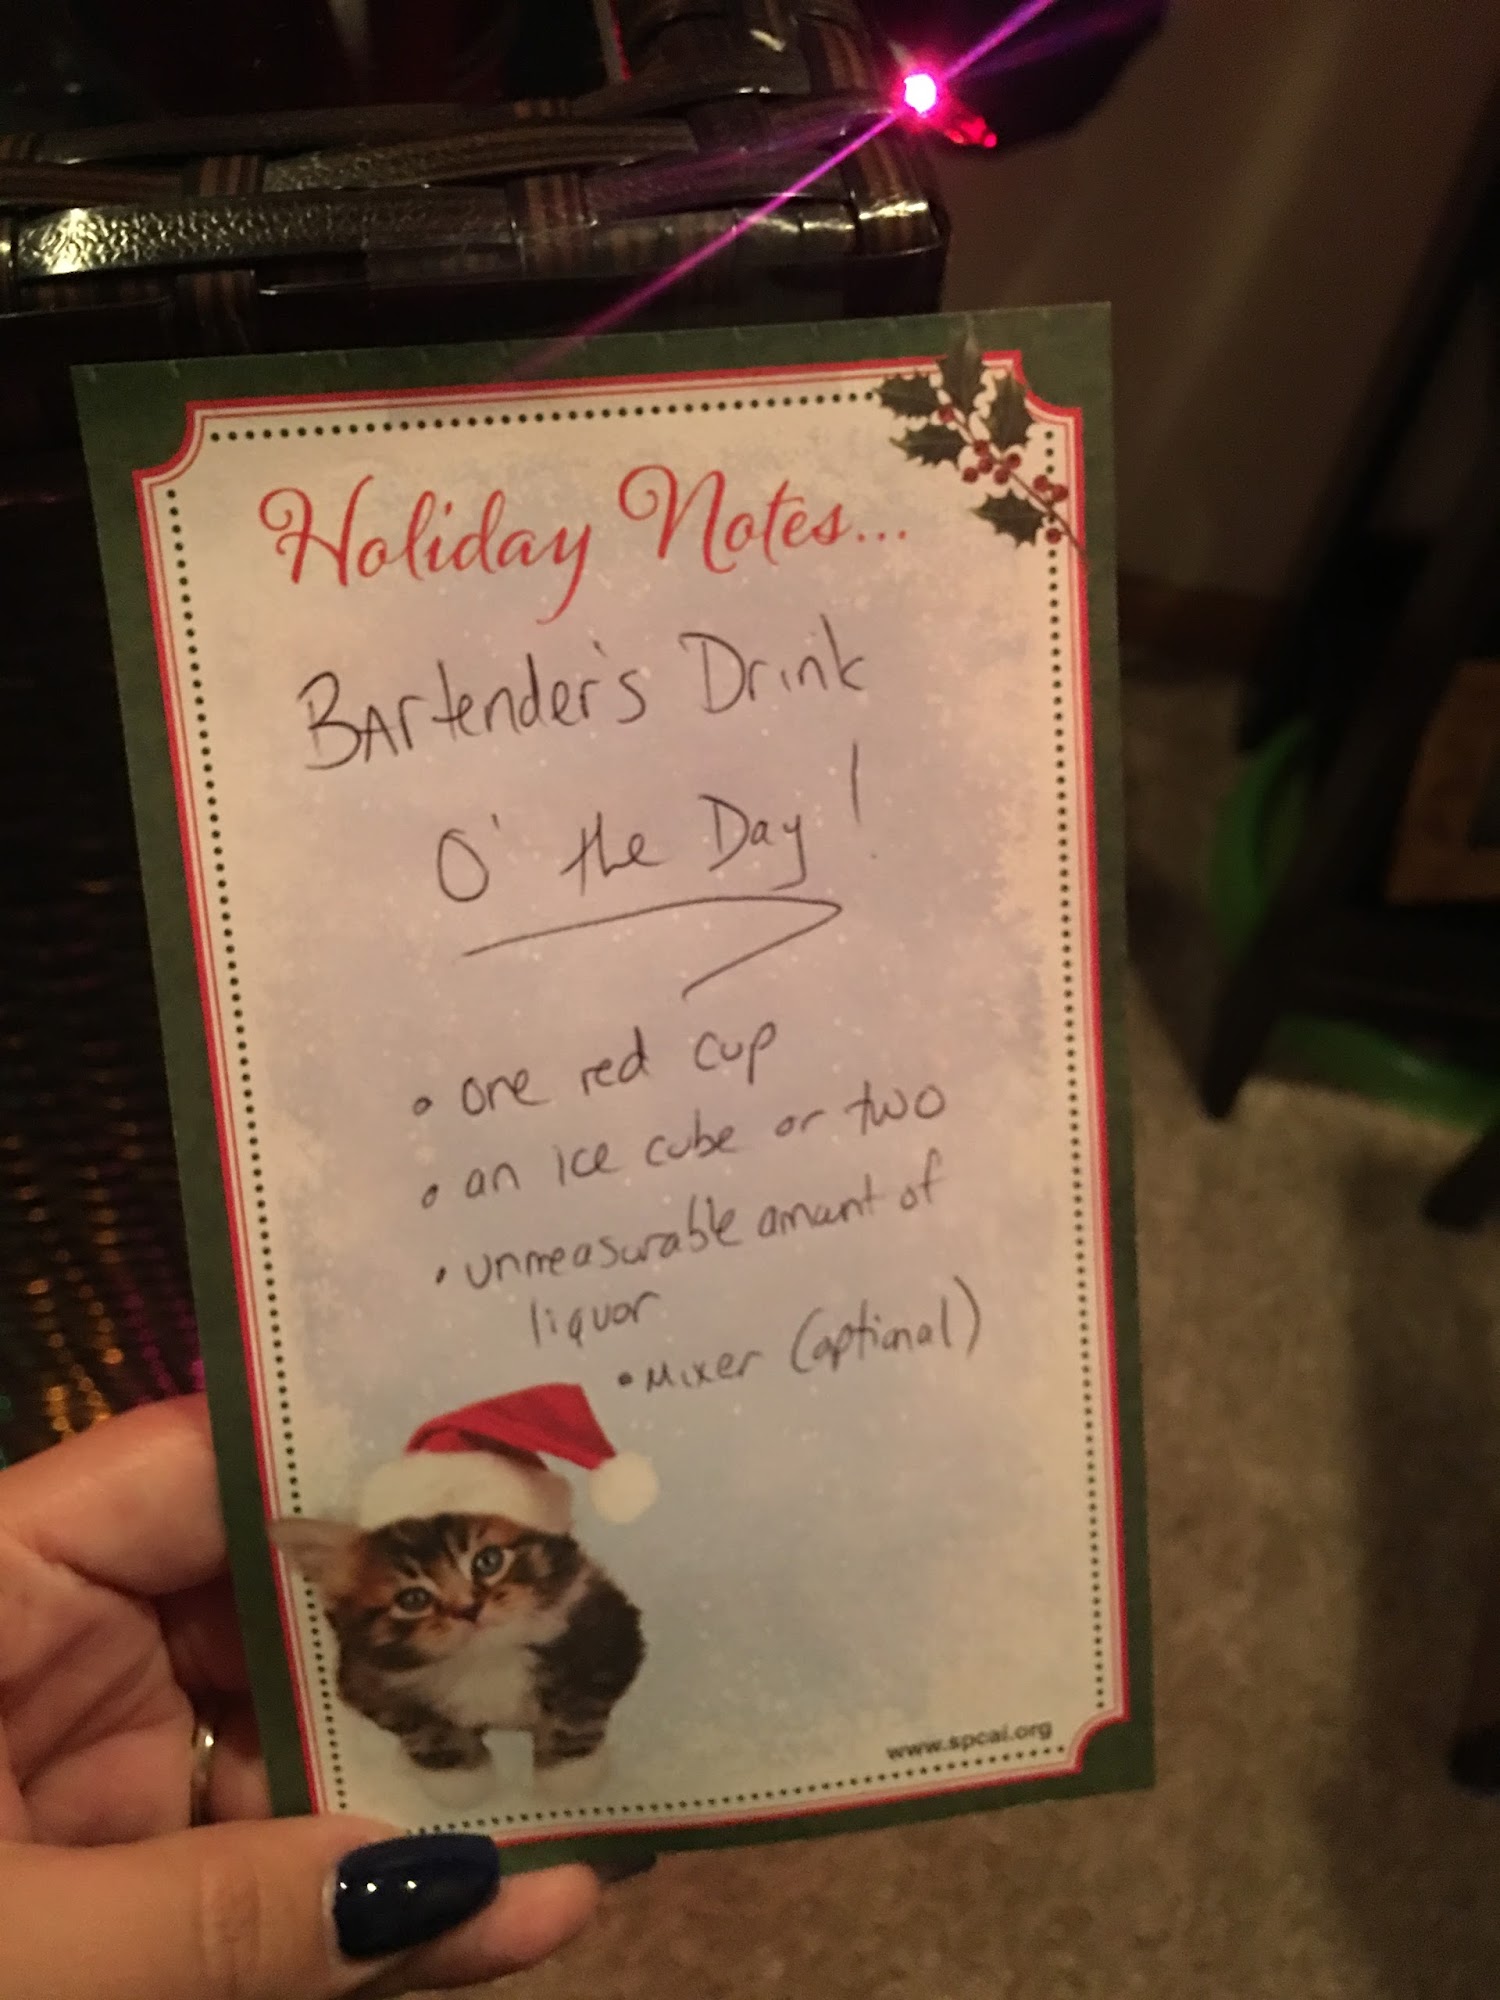 Holiday Notes...
BArtender's Drink
O' the Day!
• one red cup
• an ice cube or two
• unmeasurable amount of
liquor
• Mixer (optional)
www.spcai.org